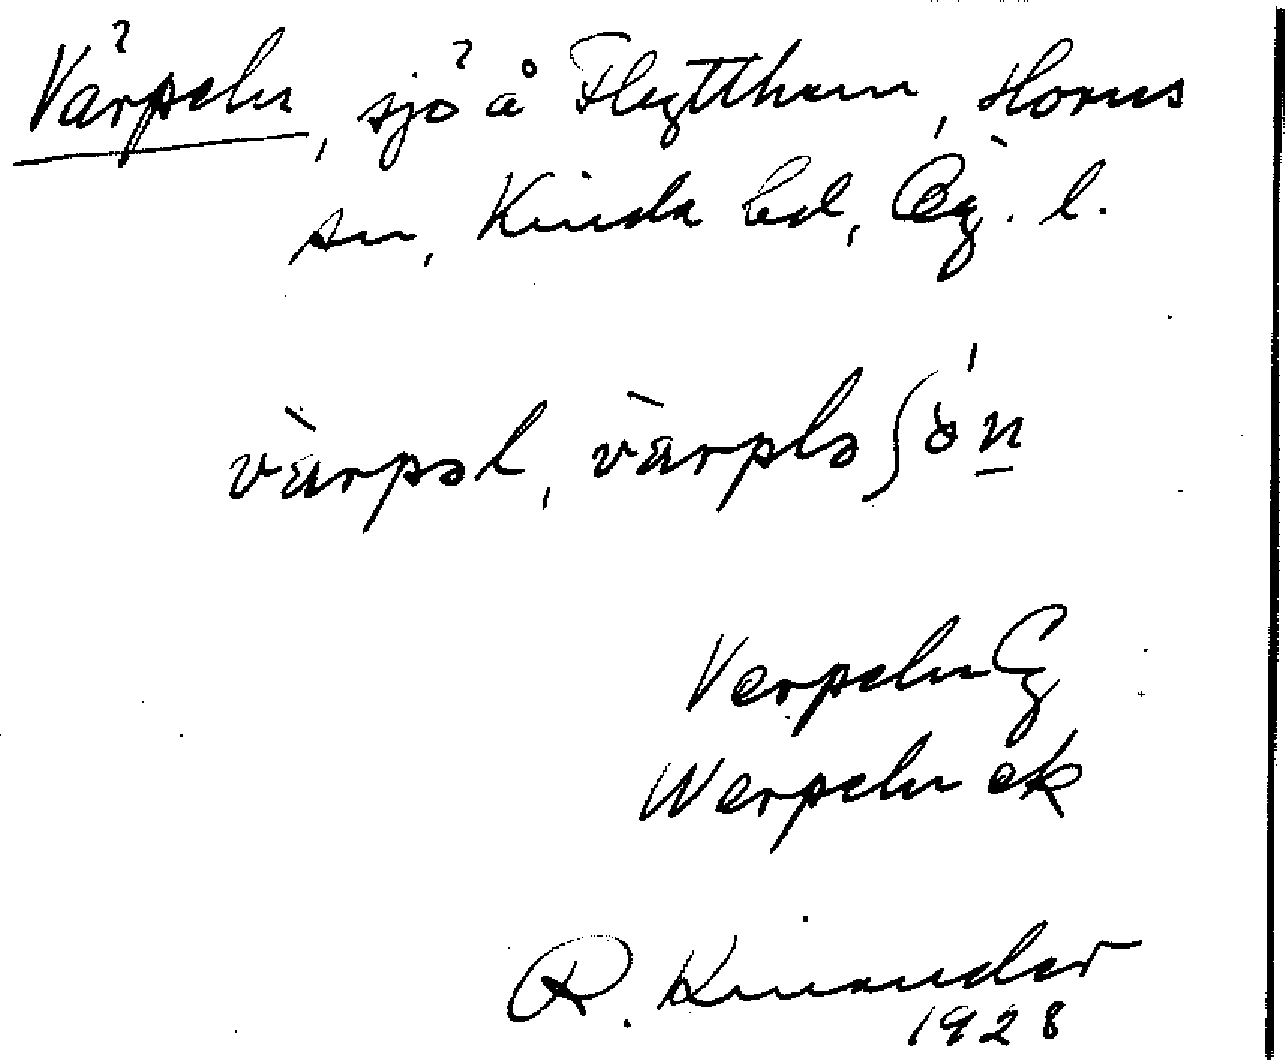 Värpeln, sjö å Flytthem, Horns
sn, Kinda hd, Ög. l.
vàrpəl, vàrplə ʃö́n
Verpeln G
Werpeln ek
R. Kinander
1928